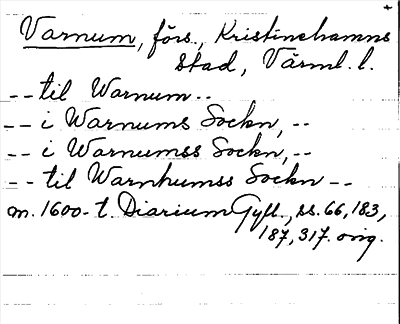 Varnum, förs., Kristinehamns
stad, Värml. l.
-- til Warnum --
-- i Warnums Sockn, --
-- i Warnumss Sockn, --
-- til Warnhumss Sockn --
m. 1600-t. Diarium Gyll., ss. 66, 183,
187, 317. orig.